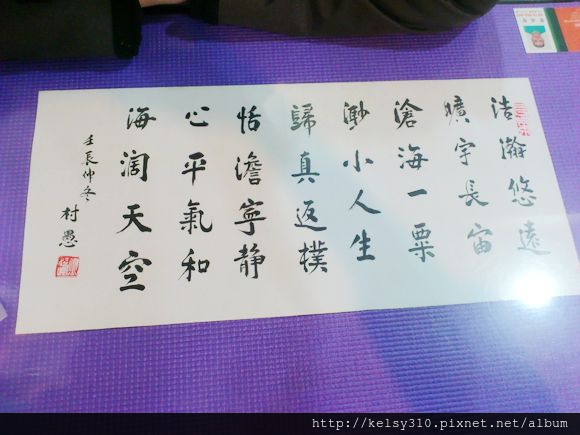 浩瀚悠遠
曠宇長宙
滄海一粟
渺小人生
歸真返樸
恬澹寧静
心平氣和
海阔天空
壬辰仲冬
村愚
http://kelsy310.pixnet.net/album